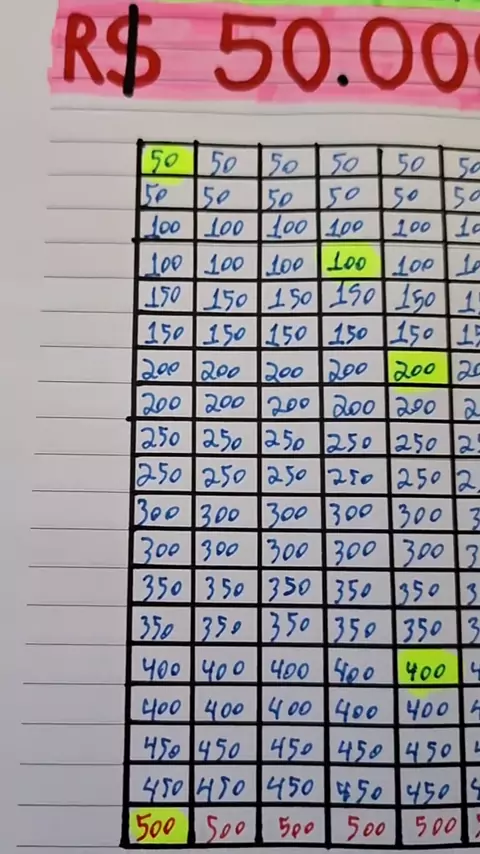 R$ 50.00
50 50 50 50 50 50
50 50 50 50 50 50
100 100 100 100 100 10
100 100 100 100 100 10
150 150 150 150 150 15
150 150 150 150 150 15
200 200 200 200 200 20
200 200 200 200 200 2
250 250 250 250 250 25
250 250 250 250 250 2
300 300 300 300 300 3
300 300 300 300 300 3
350 350 350 350 350 3
350 350 350 350 350 3
400 400 400 400 400 4
400 400 400 400 400 4
450 450 450 450 450 4
450 450 450 450 450 4
500 500 500 500 500 5